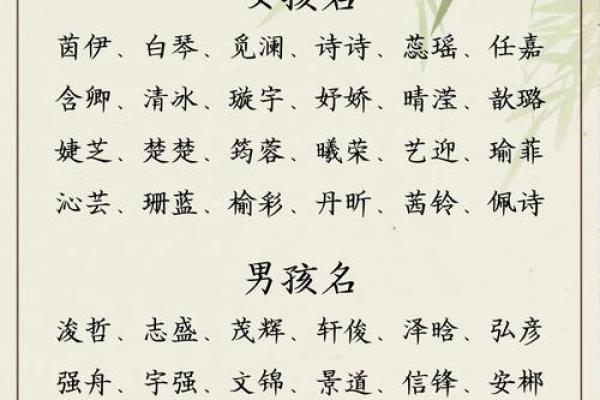 女孩名
茵伊、白琴、觅澜、诗诗、蕊瑶、任嘉
含卿、清冰、璇宇、妤娇、晴滢、歆璐
婕芝、楚楚、筠蓉、曦荣、艺迎、瑜菲
沁芸、珊蓝、榆彩、丹昕、茜铃、佩诗
男孩名
浚哲、志盛、茂辉、轩俊、泽晗、弘彦
强舟、宇强、文锦、景道、信锋、安郴